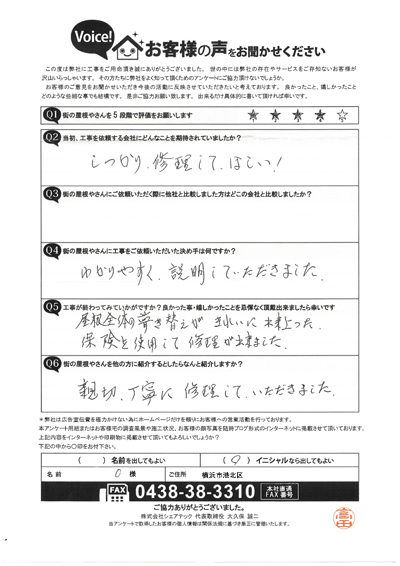 Voice!
お客様の声をお聞かせください
この度は弊社に工事をご用命頂き誠にありがとうございました。世の中には弊社の存在やサービスをご存知ないお客様が
沢山いらっしゃいます。その方たちに弊社をよく知って頂くためのアンケートにご協力頂けないでしょうか。
お客様のご意見をお聞かせいただき今後の活動に反映させていただきたいと考えております。良かったこと、嬉しかったこと
どのような些細な事でも結構です。是非ご協力お願い致します。出来るだけ具体的に書いて頂ければ幸いです。
Q1 街の屋根やさんを5段階で評価をお願いします ★ ★ ★ ★ ☆
Q2 当初、工事を依頼する会社にどんなことを期待されていましたか?
しっかり、修理して、ほしい!
Q3 街の屋根やさんにご依頼いただく際に他社と比較しました方はどこの会社と比較しましたか?
Q4 街の屋根やさんに工事をご依頼いただいた決め手は何ですか?
わかりやすく、説明していただきました。
Q5 工事が終わってみていかがですか?良かった事・嬉しかったことを忌憚なく頂戴出来ましたら幸いです
屋根全体の葺き替えがきれいに出来上った。
保険を使用して修理が出来ました。
Q6 街の屋根やさんを他の方に紹介するとしたらなんと紹介しますか?
親切、丁寧に修理して、いただきました。
＊弊社は広告宣伝費を極力かけない為にホームページだけを頼りにお客様への営業活動を行っております。
本アンケート用紙またはお客様宅の調査風景や施工状況、お客様の顔写真を随時ブログ形式のインターネットに掲載させて頂いております。
上記内容をインターネットや印刷物に掲載させて頂いてもよろしいでしょうか?
下記の中から○印をお付下さい。
( ) 名前を出してもよい ( ○ ) イニシャルなら出してもよい
名前 O 様 ご住所 横浜市港北区
FAX 0438-38-3310 本社直通 FAX番号
ご協力ありがとうございました。
株式会社シェアテック 代表取締役 大久保 誠二
当アンケートで取得したお客様の個人情報は関係法規に基づき厳正に管理いたします。